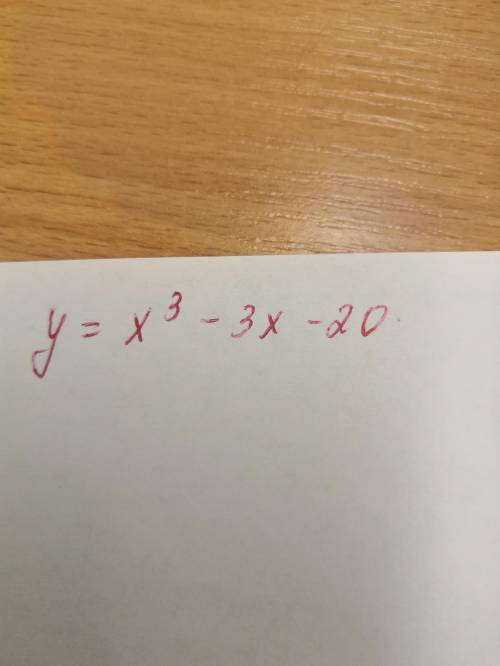 y = x³ - 3x - 20